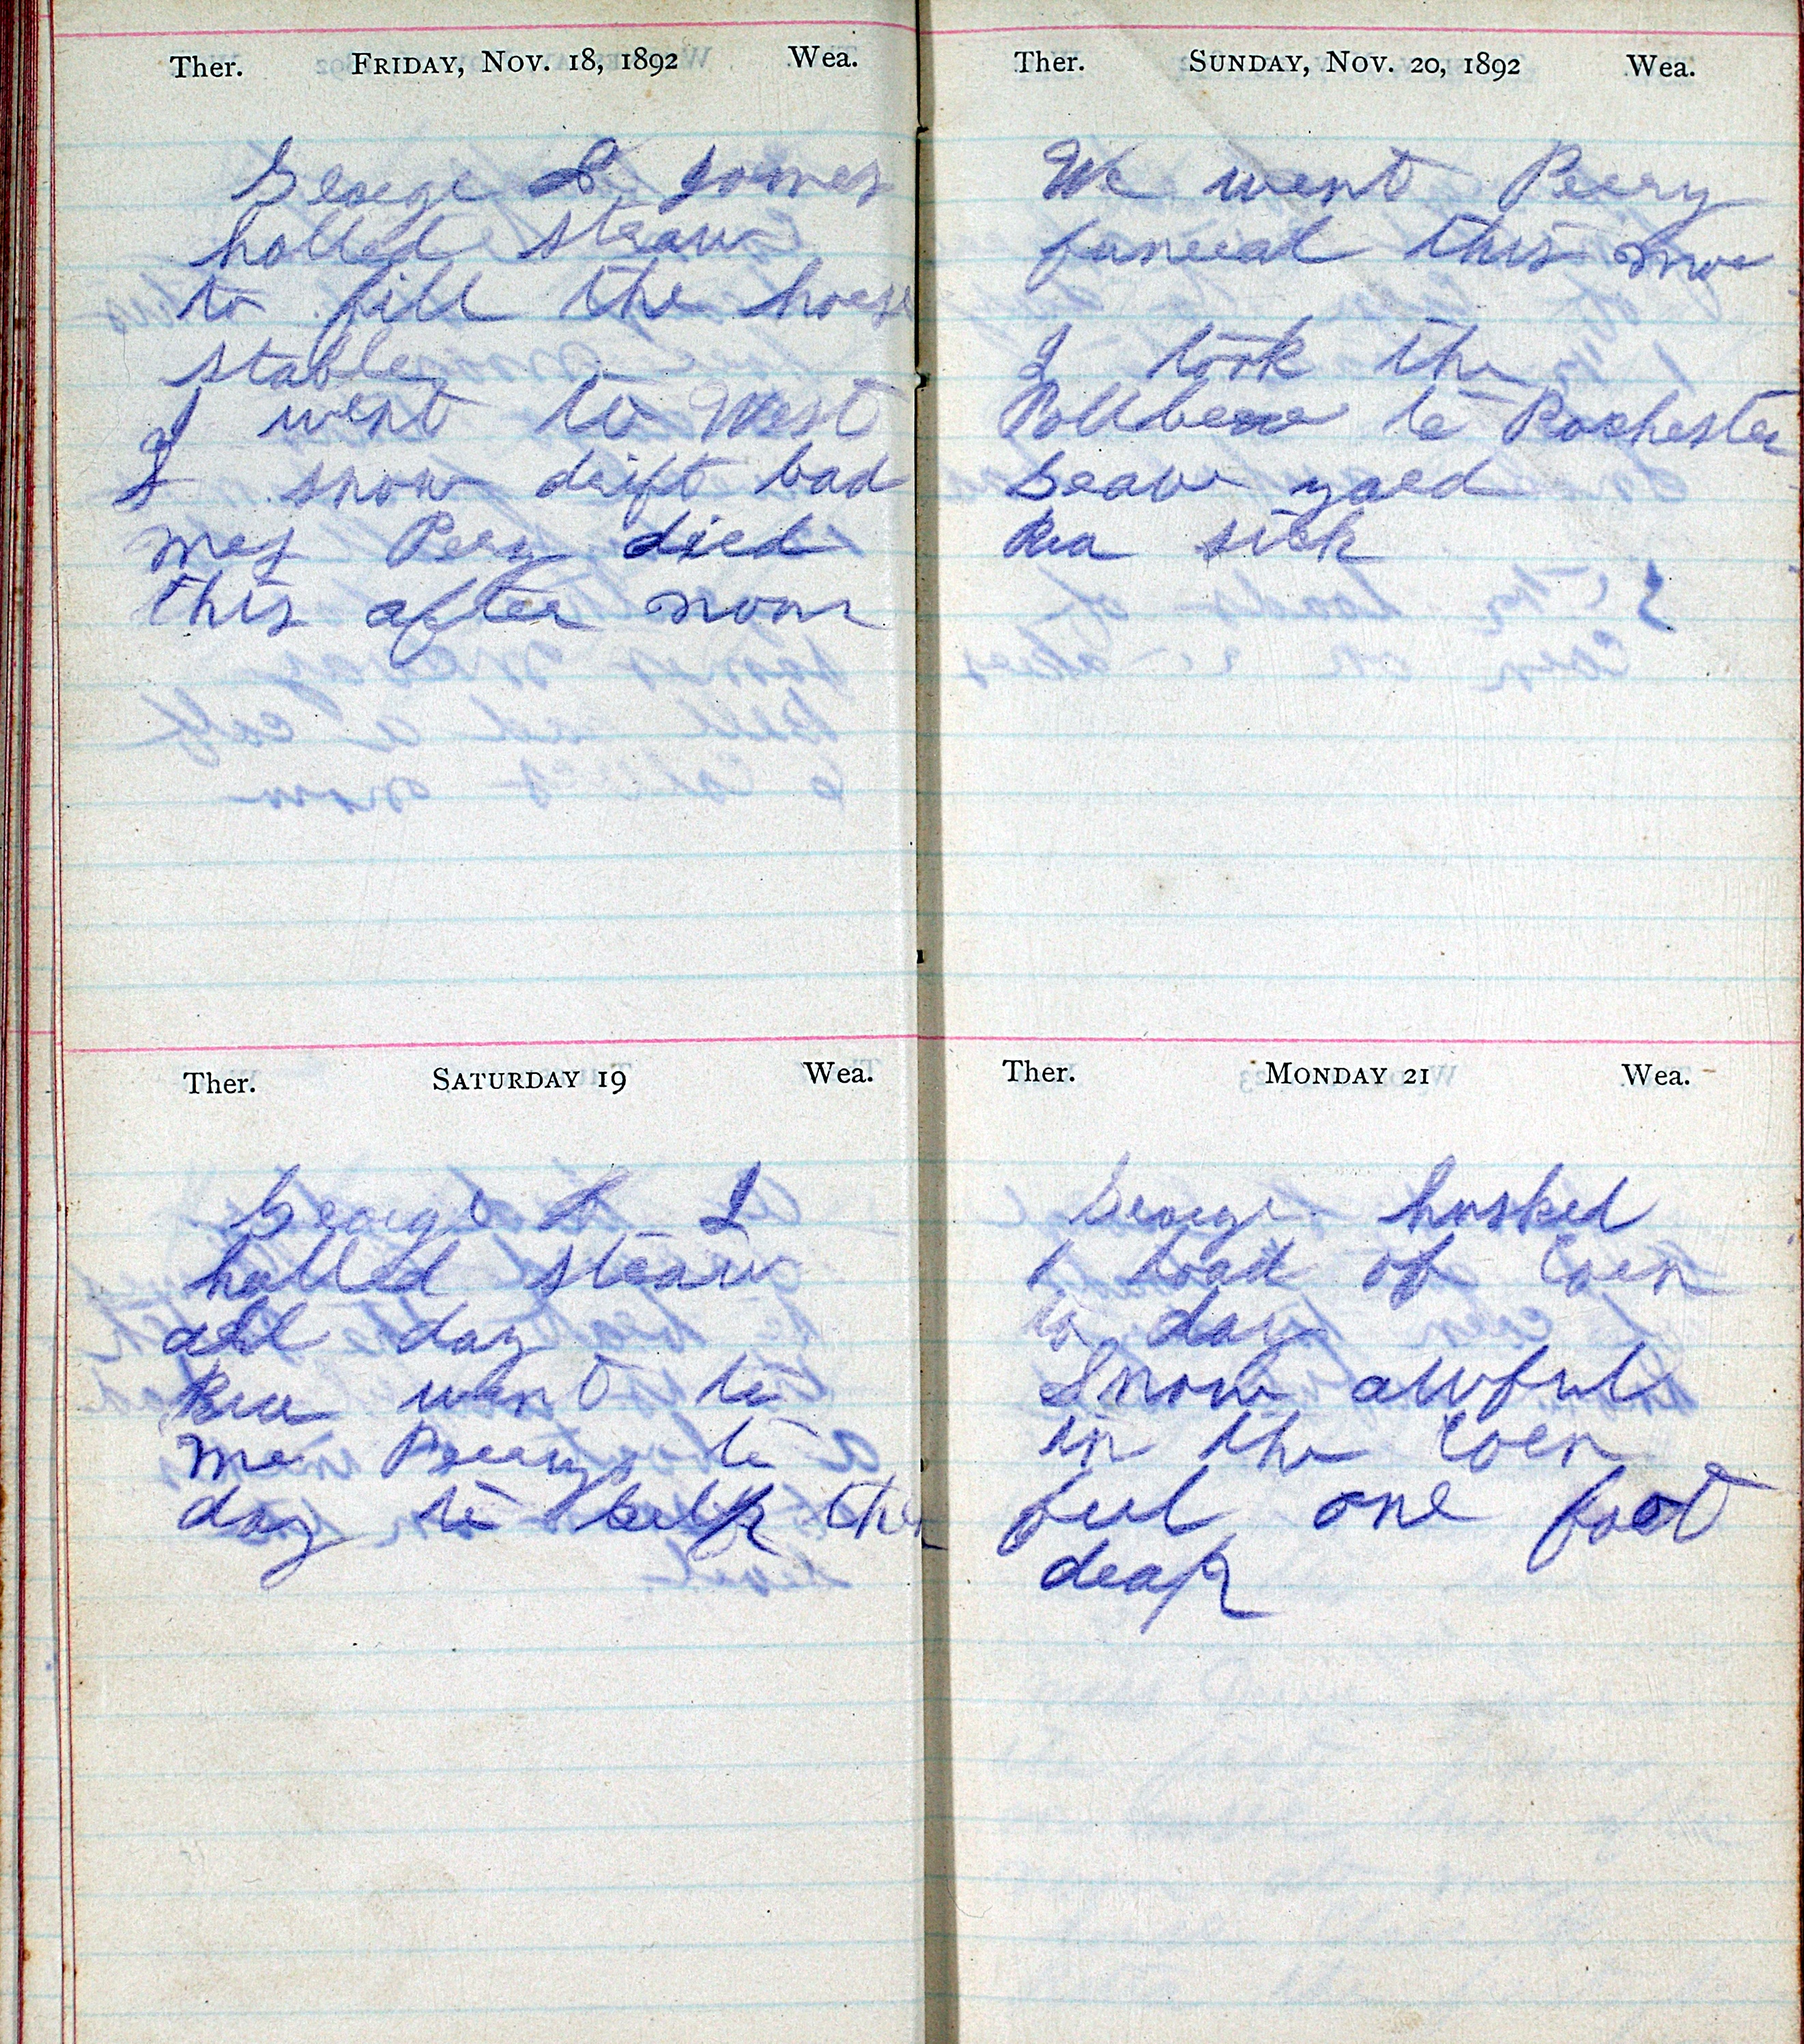 Ther. FRIDAY, NOV. 18, 1892 Wea.
George & James
holled straw
to fill the horse
stable
I went to West
I snow drift bad
Mrs Pery died
this after noon
Ther. SATURDAY 19 Wea.
George & I
holled straw
all day
Rea went to
Mr Peery to
day to help the
Ther. SUNDAY, NOV. 20, 1892 Wea.
We went Peery
funeral this mor
I took the
to Rochester
Grave yard
Rea sick
Ther. MONDAY 21 Wea.
George husked
1 load of Corn
to day
Snow awful
in the Corn
feel one foot
deap